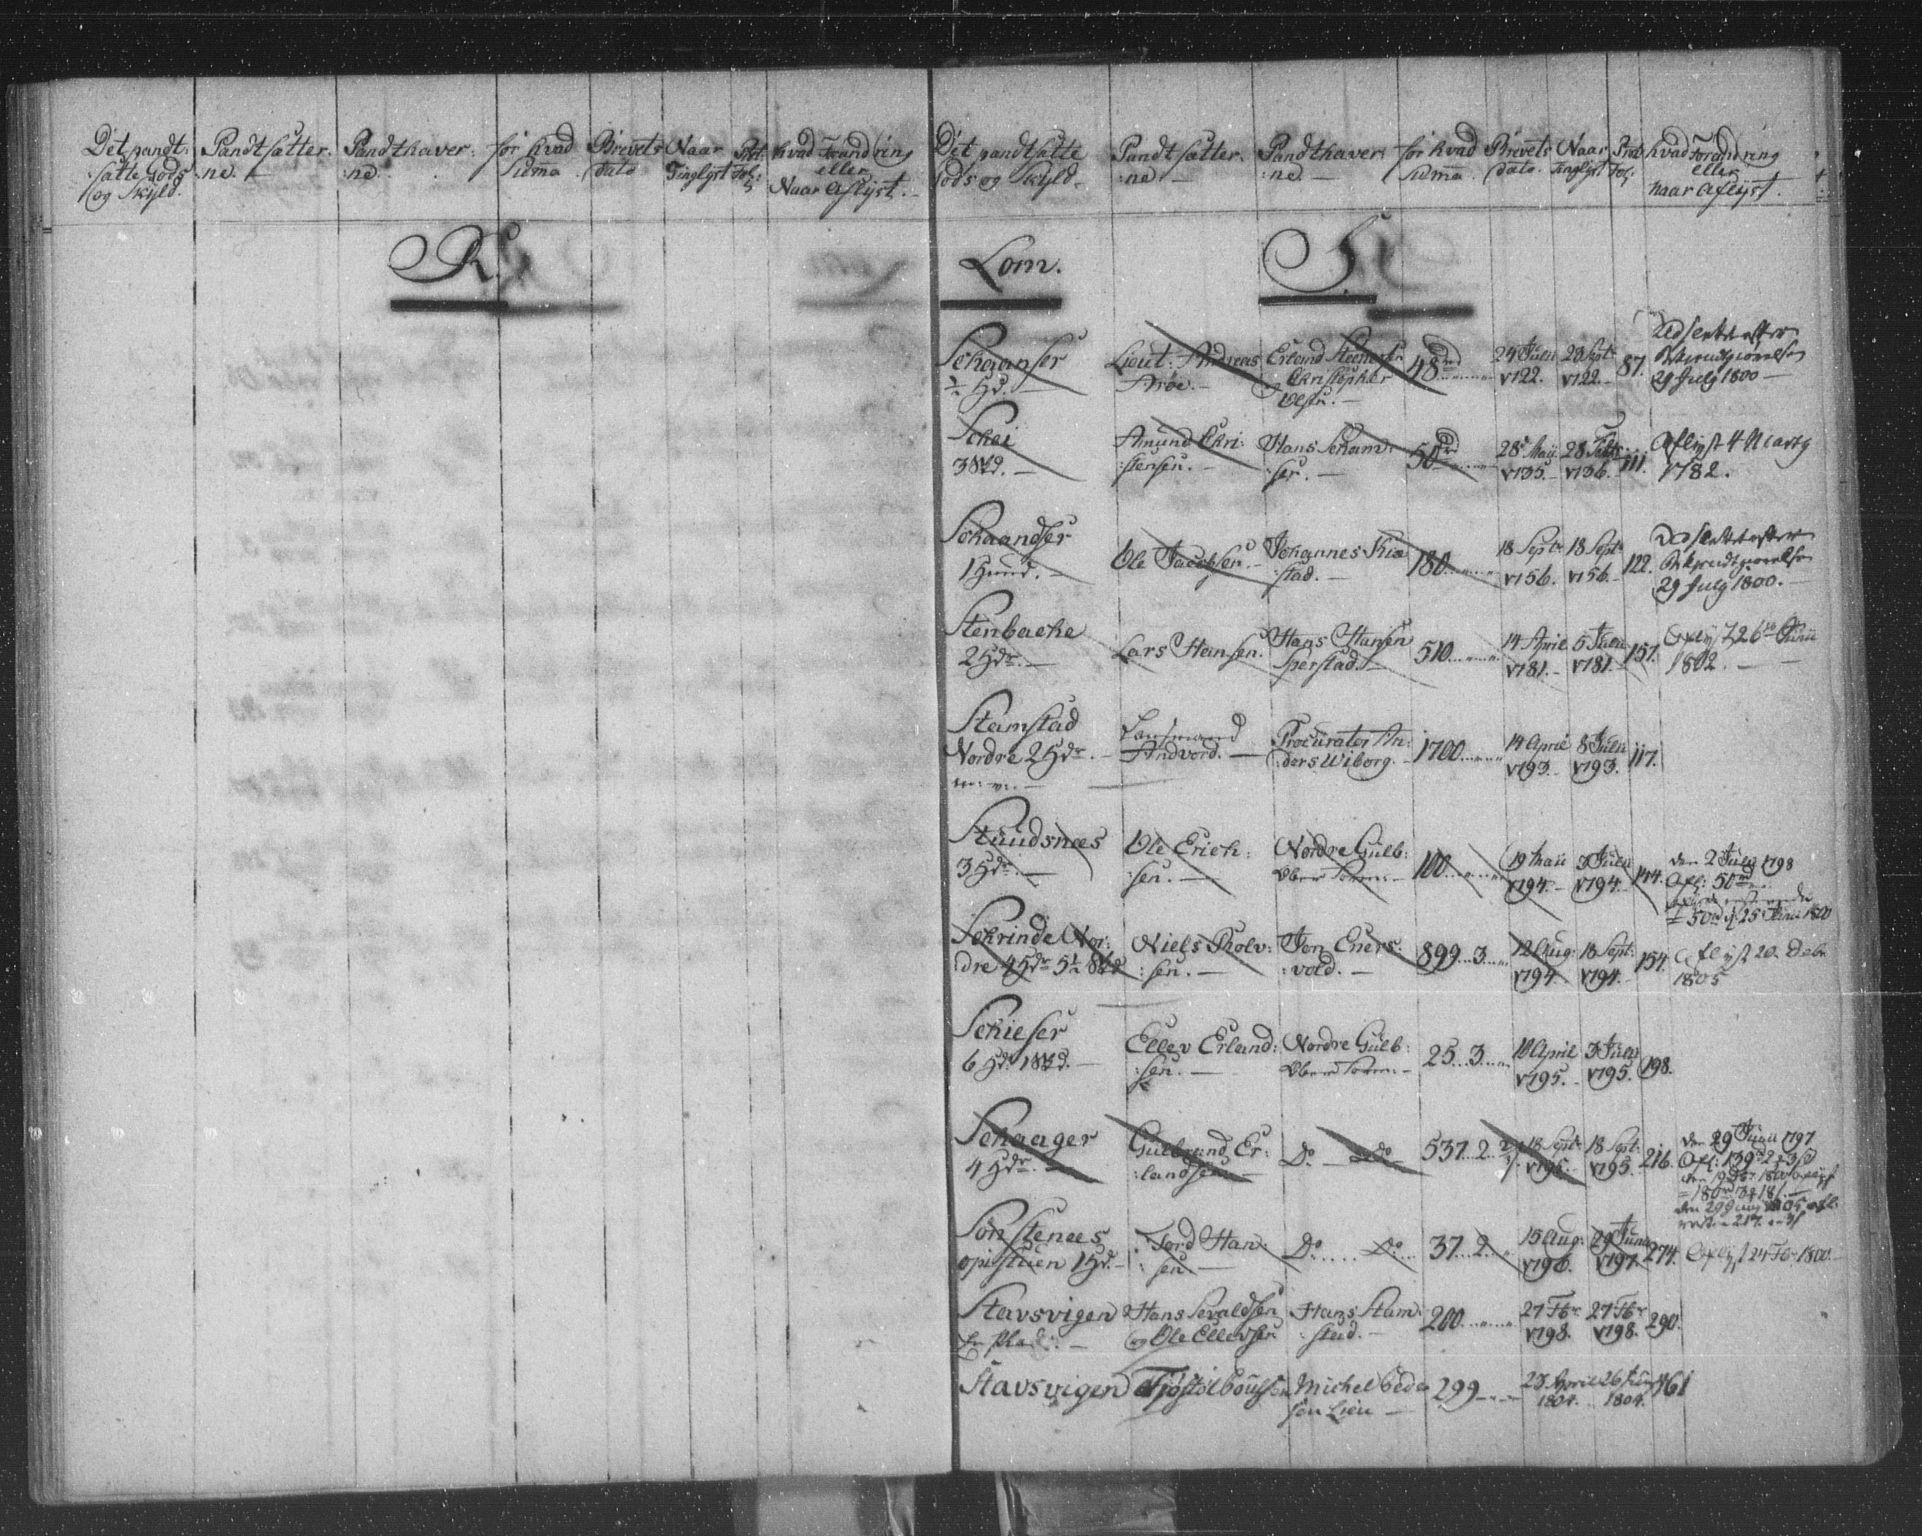 Det pandt:
:satte Gods
og Skyld.
Pandtsætter:
:ne.
Pandthaver:
:ne.
for hvad
Suma
Brevets
dato
Naar
Tinglyst
Prot:
Fol:
hvad Forandring
eller
Naar Aflyst.
R.
Det pandtsatte
Gods og Skyld.
Pandtsætter:
:ne.
Pandthaver:
:ne.
for hvad
Suma.
Brevets
dato.
Naar
Tinglyst
Prot:
Fol:
hvad Forandring
eller
naar Aflyst.
Lom.
S.
Schaanser
½ Hd.
Lieut: Andreas
Arøe.
Erland Steenersen
og Christopher
Olsen.
48 rd
24 Juni
1722.
23 Sept:
1722.
87.
Udslettet efter
Bekiendtgiørelse
29 July 1800
Schei
3 Skd.
Amund Chri:
:stensen.
Hans Scham:
:ser.
50 rd
28 Maij
1735.
28 Febr:
1736.
111.
Aflyst 4 Marty
1782.
Schaandser
1 Hund.
Ole Jacobsen.
Johannes Kia
:stad.
180
18 Sept:
1756.
18 Sept:
1756.
122.
Udslettet efter
Bekiendtgiørelse
29 July 1800.
Stenbache
2 Hdr.
Lars Hansen.
Hans Hansen
Sperstad.
510
14 April
1781.
5 Juni
1781.
157.
Aflyst 26de Juni
1802.
Stamstad
Nordre 2 Hdr.
m: v:
Lensmand
Andvord.
Procurator An:
:ders Wiborg.
1700
14 April
1793.
8 Juni
1793.
117.
Stuudsnees
3 Hdr.
Ole Erich:
:sen.
Nordre Gulb:
Ober Form:
100
19 Maii
1794.
3 Juni
1794.
144.
den 2 July 1798
Afl: 50 rd
50 rd d. 25 Juni 1800
Schrinde Nor:
dre 4 Hdr 5½ Skd
Niels Tholv:
:sen.
Jon Eners:
:vold.
899 3
12 Aug:
1794.
18 Sept:
1794.
154.
Aflyst 20. Debr
1805
Schieser
6 Hd: 1 Skd.
Ellev Erland:
:sen.
Nordre Gulb:
Ober Form:
25 3
10 April
1795.
3 Juni
1795.
198.
Schaager
4 Hdr.
Gulbrand Er:
:landsen
Do Do
537 2 2
18 Sept:
1795.
18 Sept:
1795.
216.
den 29 Junii 1797
Afl: 139 rd 2 3 ß
Sønstenees
opistuen 1 Hd.
Tord Han
:sen
Do Do
37 2
15 Aug:
1796.
29 Juni
1797.
274.
Aflyst 24 Fbr 1800.
Stavsvigen
Hans Sevaldsen
og Ole Ellevsen
Hans Stam:
:stad.
200
27 Fbr
1798.
27 Fbr
1798.
290.
Stavsvigen
Tjøstøl Poulsen
Michel Peder
sen Lien
299
23 April
1804.
26 Juni
1804.
161